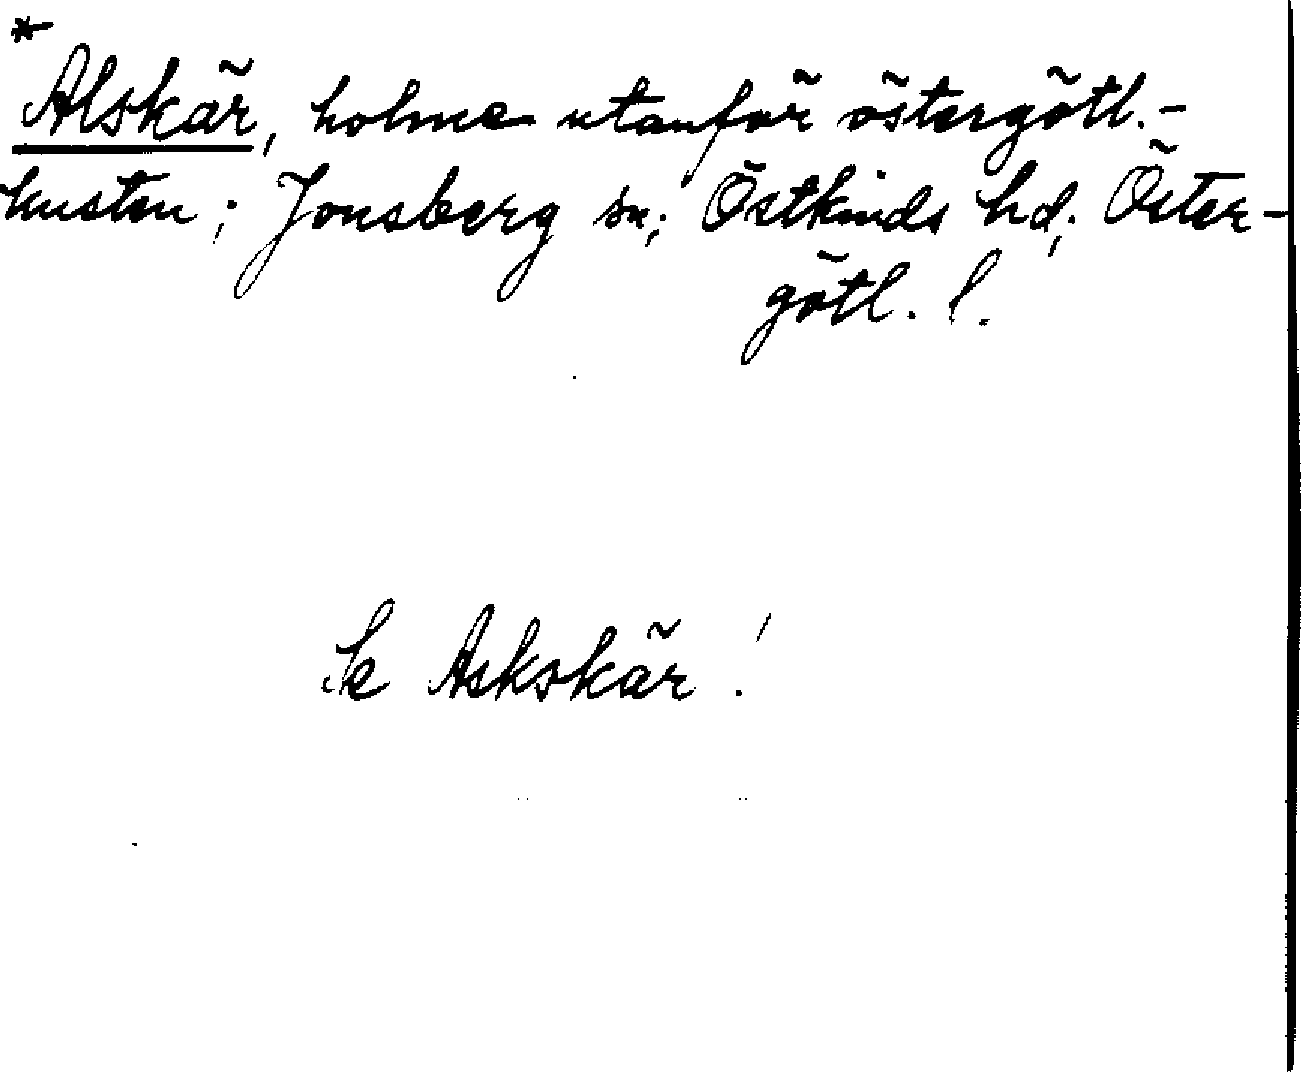 *
Alskär, holme utanför östergötl.-
kusten; Jonsberg sn; Östkinds hd; Öster-
götl. l.
Se Askskär!